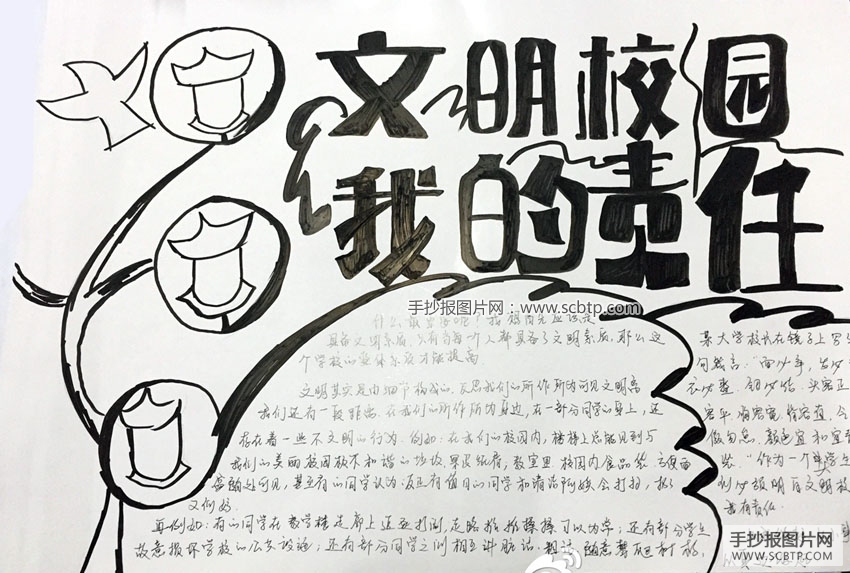 文明校园
我的责任
手抄报图片网：www.scbtp.com
具备文明素质，只有当每一个人都具备了文明素质，那么这
个学校的整体素质才能提高
文明其实是由细节构成的，反思我们的所作所为可见文明离
我们还有一段距离。在我们的所作所为身边，在一部分同学的身上，还
存在着一些不文明的行为。例如：在我们的校园内，楼梯上总能见到与
我们的美丽校园极不和谐的垃圾，果皮纸屑，教室里、校园内食品袋、方便面
盒随处可见，甚至有的同学认为：反正有值日的同学和清洁阿姨会打扫，扔了
又何妨
再例如：有的同学在教学楼走廊上追逐打闹，走路推推搡搡习以为常；还有部分学生
故意损坏学校的公共设施；还有部分同学之间相互讲脏话，随意攀爬树
某大学校长在镜子上写
句箴言：“面必净，发必
衣必整，钮必结，头容正
容平，胸容宽，背容直，
做勿怠，颜色宜和宜
“作为一个
文明校
我有责任
手抄报图片网
WWW.SCBTP.COM